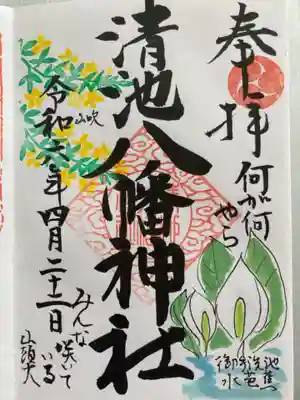 奉拝
何が何
やら
清池八幡神社
山吹
令和六年四月二十二日
みんな咲いて
いる
山頭火
御手洗池
水芭蕉